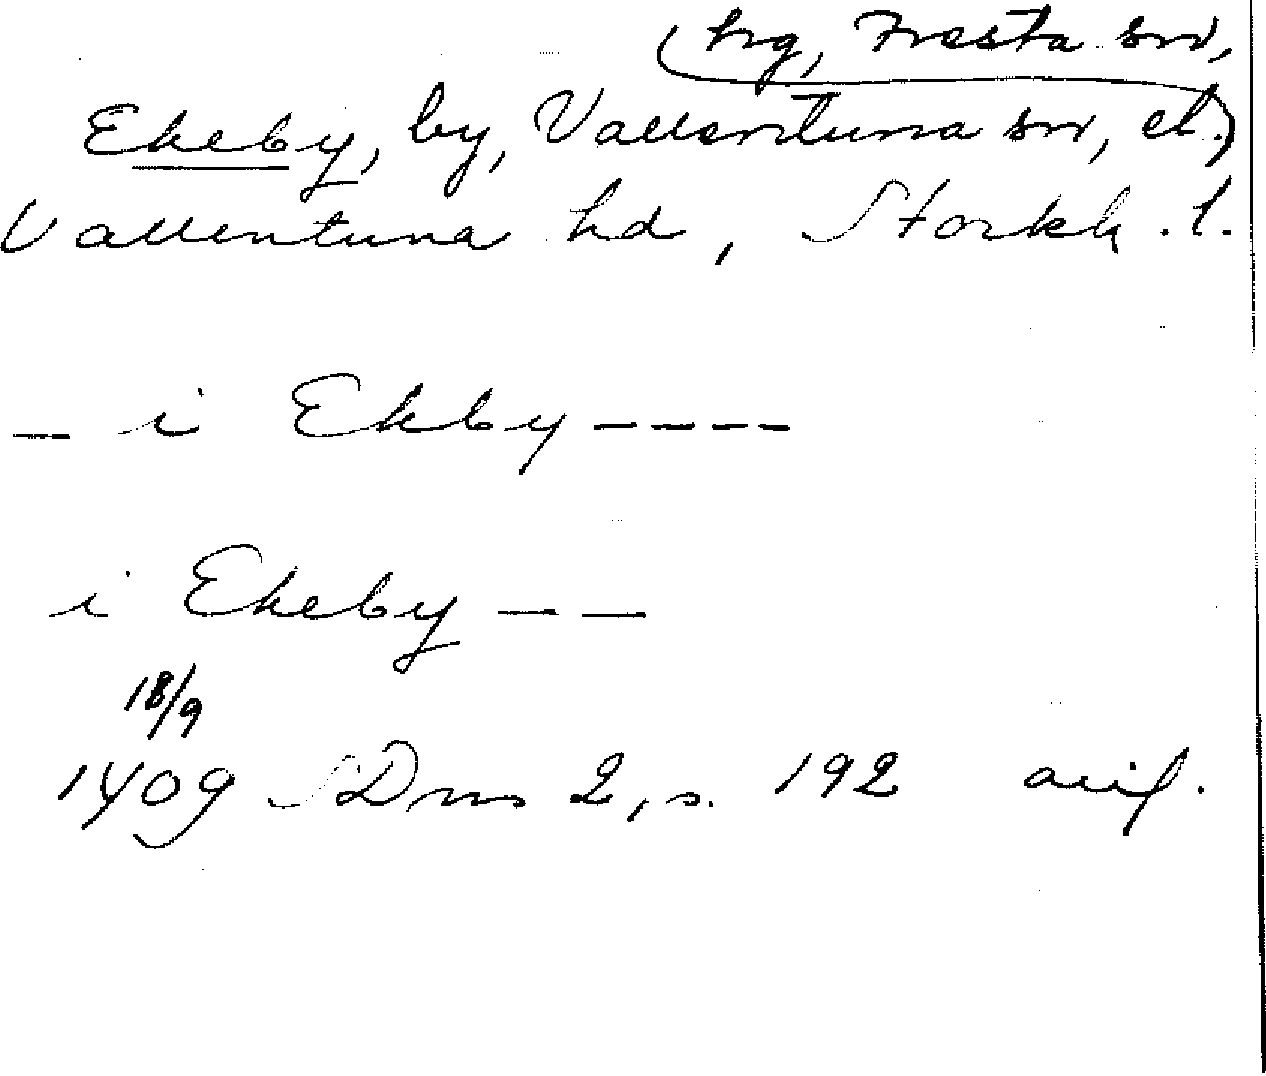 (hg, Fresta sn,
Ekeby, by, Vallentuna sn, el.)
Vallentuna hd, Stockh. l.
– i Ekby – – – –
i Ekeby – –
18/9
1409 SDns 2, s. 192 avs.